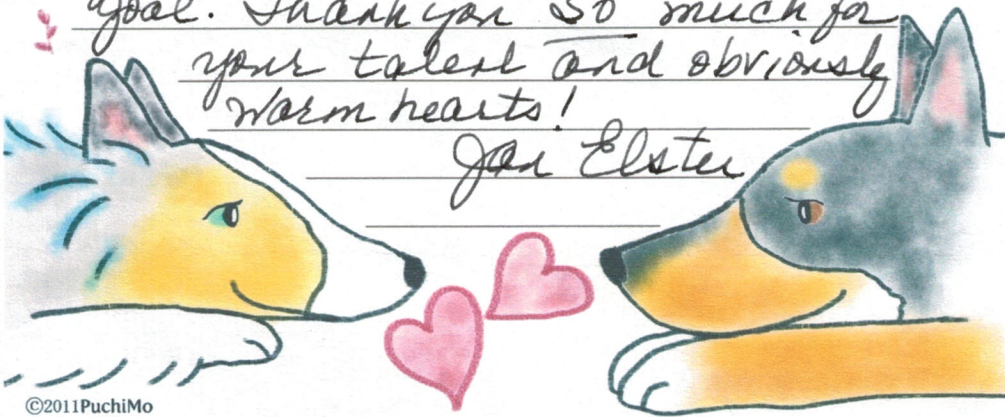 goal. Thank you so much for
your talent and obviously
warm hearts!
Jan Elster
©2011PuchiMo